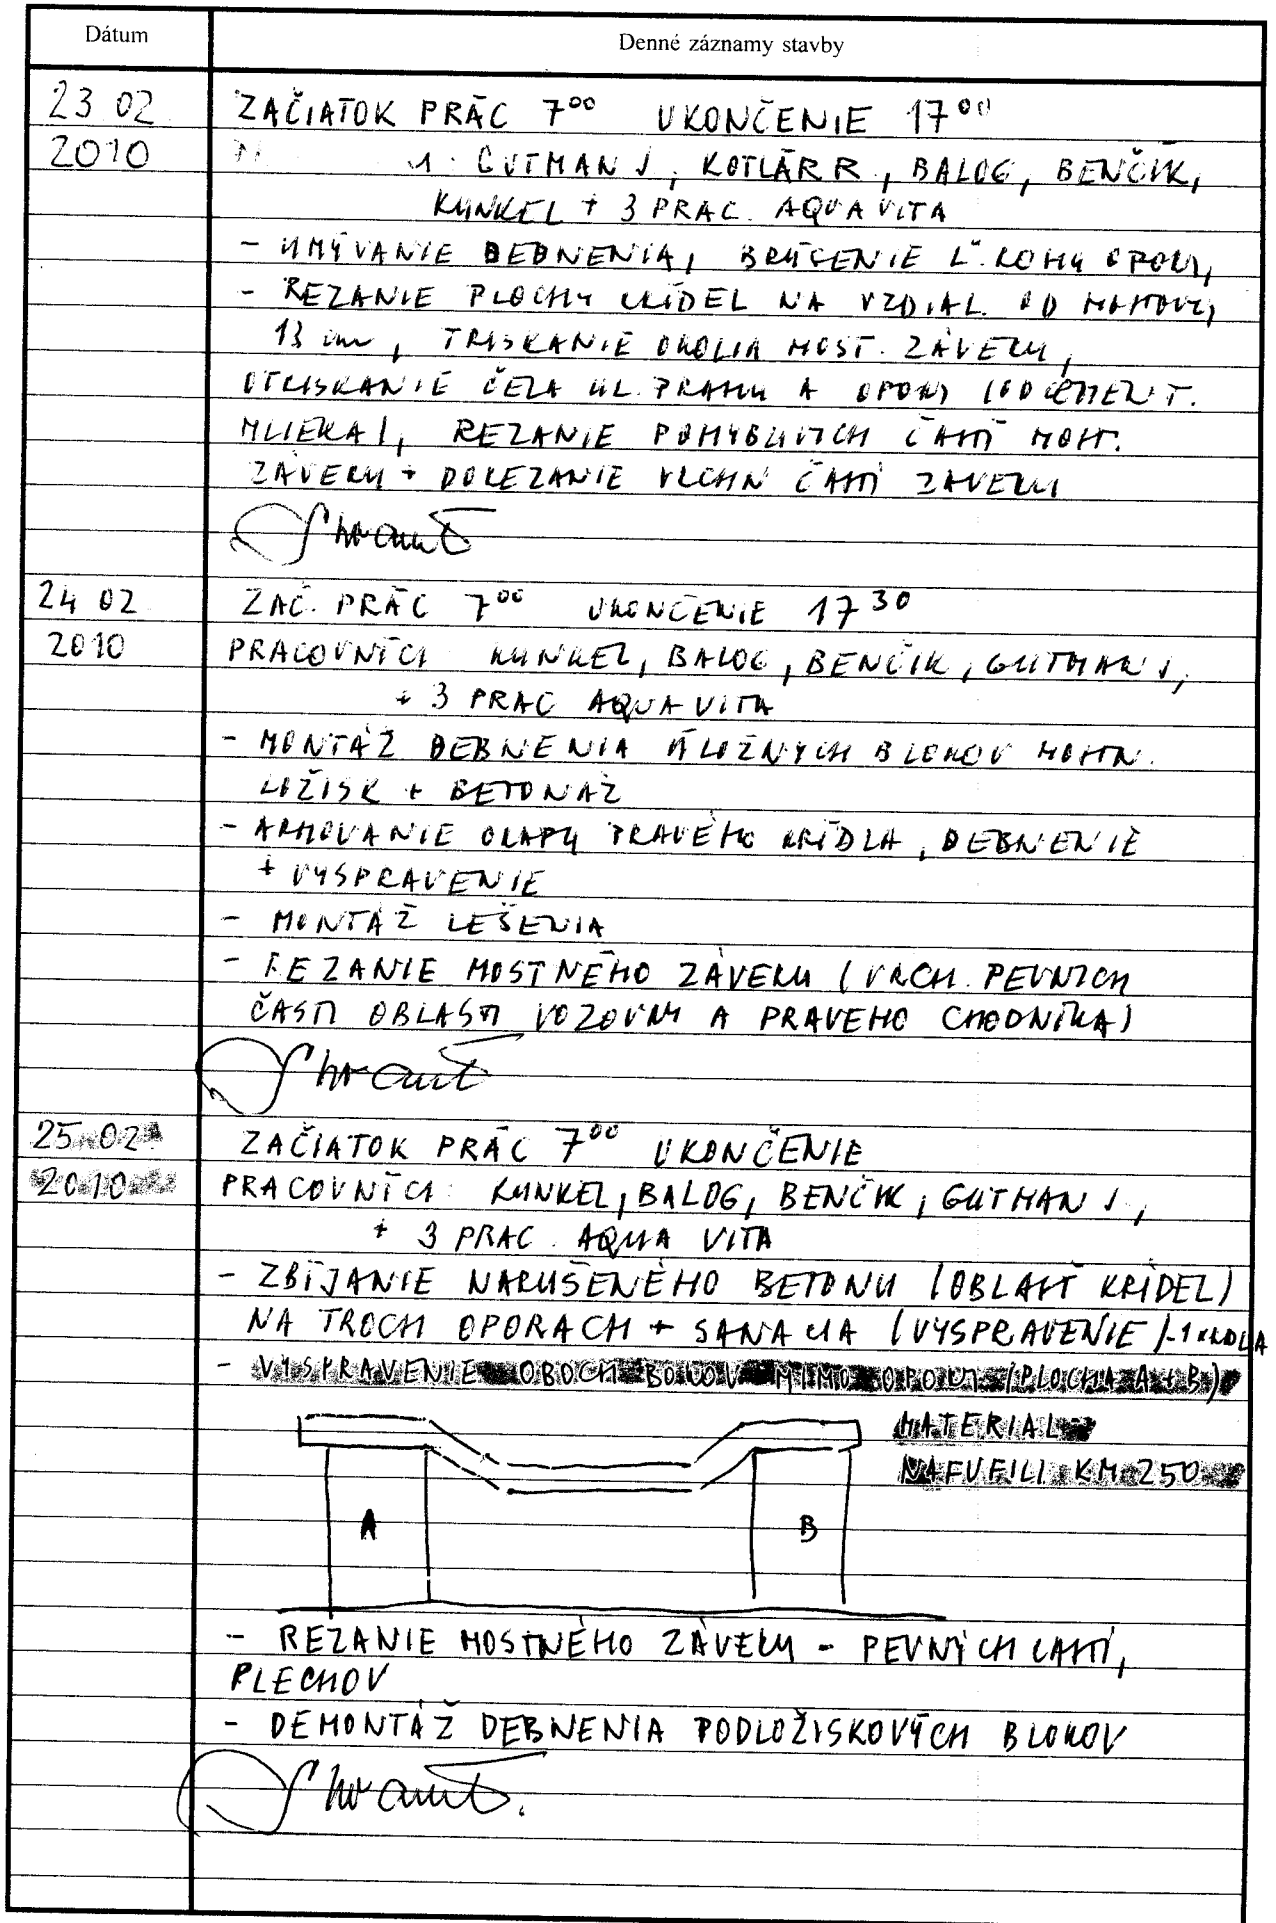 Dátum
Denné záznamy stavby
23 02
ZAČIATOK PRÁC 7⁰⁰ UKONČENIE 17⁰⁰
2010
GUTMAN J, KOTLÁR R, BALOG, BENČÍK,
KUNKEL + 3 PRAC. AQUA VITA
- UMÝVANIE DEBNENIA, BRÚSENIE Ľ. ROHU OPORY,
- REZANIE PLOCHY KRÍDEL NA VZDIAL. OD
13 cm, TRISKANIE OKOLIA MOST. ZÁVERU,
OTRISKANIE ČELA ÚL. PRAHU A OPORY (OD CEMENT.
MLIEKA), REZANIE POHYBLIVÝCH ČASTÍ MOST.
ZÁVERU + DOREZANIE VRCHN ČASTÍ ZÁVERU
24 02
ZAČ. PRÁC 7⁰⁰ UKONČENIE 17³⁰
2010
PRACOVNÍCI KUNKEL, BALOG, BENČÍK, GUTMAN J,
+ 3 PRAC AQUA VITA
- MONTÁŽ DEBNENIA ÚLOŽNÝCH BLOKOV MOSTN.
LOŽISK + BETONÁŽ
- ARMOVANIE PRAVÉHO KRÍDLA, DEBNENIE
+ VYSPRAVENIE
- MONTÁŽ LEŠENIA
- REZANIE MOSTNÉHO ZÁVERU (VRCH. PEVNÝCH
ČASTÍ OBLASTI VOZOVKY A PRAVÉHO CHODNÍKA)
25 02
ZAČIATOK PRÁC 7⁰⁰ UKONČENIE
2010
PRACOVNÍCI: KUNKEL, BALOG, BENČÍK, GUTMAN J,
+ 3 PRAC. AQUA VITA
- ZBÍJANIE NARUŠENÉHO BETONU (OBLASŤ KRÍDEL)
NA TROCH OPORACH + SANACIA (VYSPRAVENIE)
- VYSPRAVENIE OBOCH BOKOV MIMO OPORY (PLOCHA A+B)
MATERIAL
NAFUFILL KM 250
A
B
- REZANIE MOSTNÉHO ZÁVERU - PEVNÝCH ČASTÍ,
PLECHOV
- DEMONTÁŽ DEBNENIA PODLOŽISKOVÝCH BLOKOV